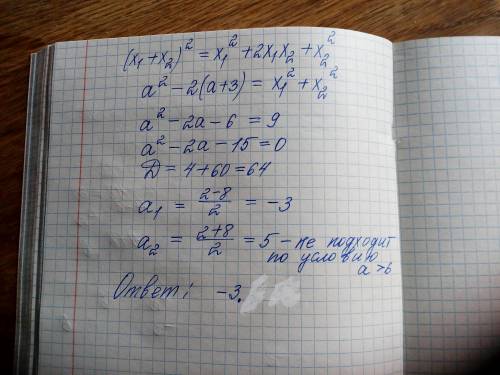 (x₁ + x₂)² = x₁² + 2x₁x₂ + x₂²
a² - 2(a+3) = x₁² + x₂²
a² - 2a - 6 = 9
a² - 2a - 15 = 0
D = 4 + 60 = 64
a₁ = (2-8)/2 = -3
a₂ = (2+8)/2 = 5 - не подходит
по условию
a > 6
Ответ: -3.